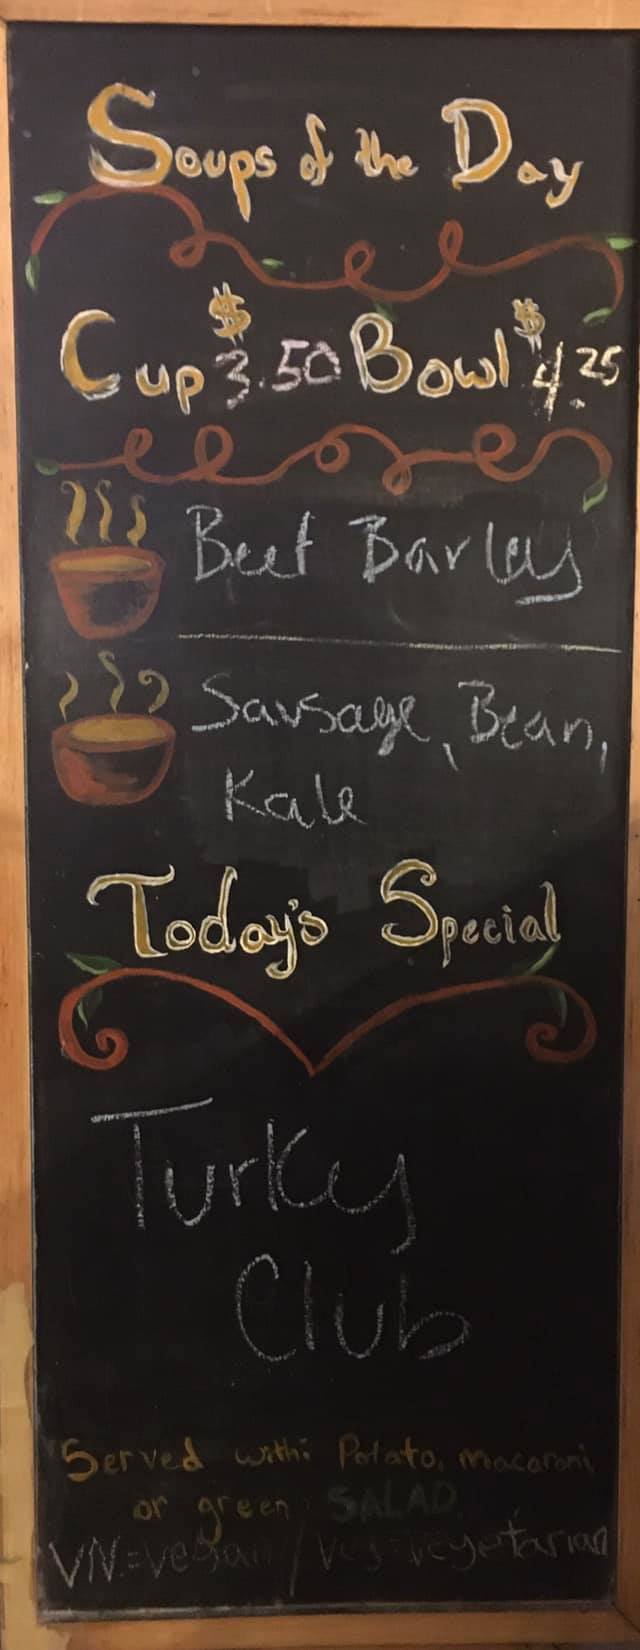 Soups of the Day
Cup $3.50 Bowl $4.25
Beef Barley
Sausage, Bean,
Kale
Today's Special
Turky
Club
Served with: Potato, macaroni,
or green SALAD
VN=vegan / Veg=vegetarian